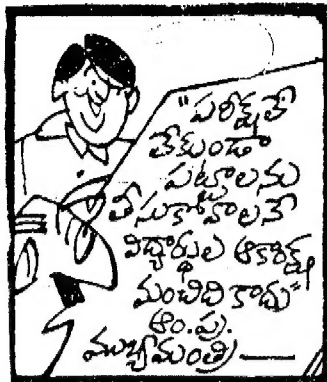 "పరీక్షలే
లేకుండా
పట్టాలను
తీసుకోవాలనే
విద్యార్థుల ఆకాంక్ష
మంచిది కాదు"
ఆం.ప్ర.
ముఖ్యమంత్రి —